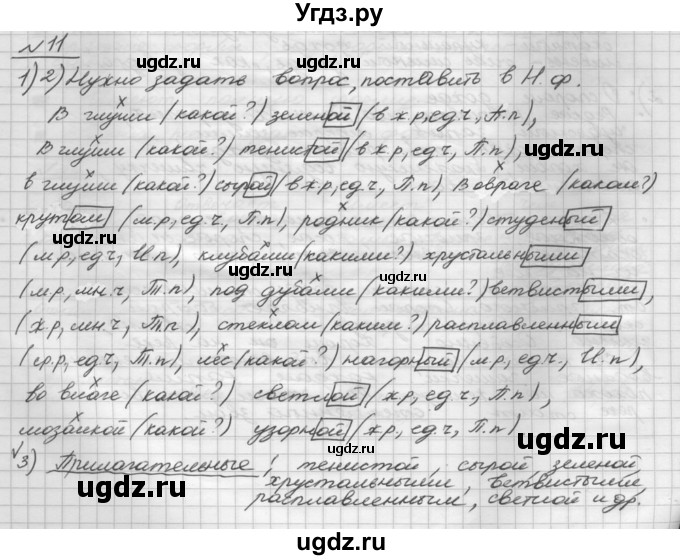 Угдз.ру
№11
1) 2) Нужно задать вопрос, поставить в Н.ф.
В глуши (какой?) зеленой (в ж.р, ед.ч., П.п),
В глуши (какой?) тенистой (в ж.р, ед.ч, П.п),
в глуши (какой?) сырой (в ж.р, ед.ч, П.п), в овраге (каком?)
крутом (м.р, ед.ч, П.п), родник (какой?) студеный
(м.р, ед.ч, И.п), клубами (какими?) хрустальными
(м.р, мн.ч, Т.п), под дубами (какими?) ветвистыми,
(ж.р, мн.ч, Т.п), стеклом (каким?) расплавленным
(ср.р, ед.ч, Т.п), лес (какой?) нагорный (м.р, ед.ч, И.п),
во влаге (какой?) светлой (ж.р, ед.ч, П.п),
мозаикой (какой?) узорной (ж.р, ед.ч, П.п)
3) Прилагательные: тенистой, сырой, зеленой,
хрустальными, ветвистыми,
расплавленным, светлой и др.
ugdz.ru
ugdz.ru
ugdz.ru
ugdz.ru
ugdz.ru
ugdz.ru
ugdz.ru
ugdz.ru
ugdz.ru
ugdz.ru